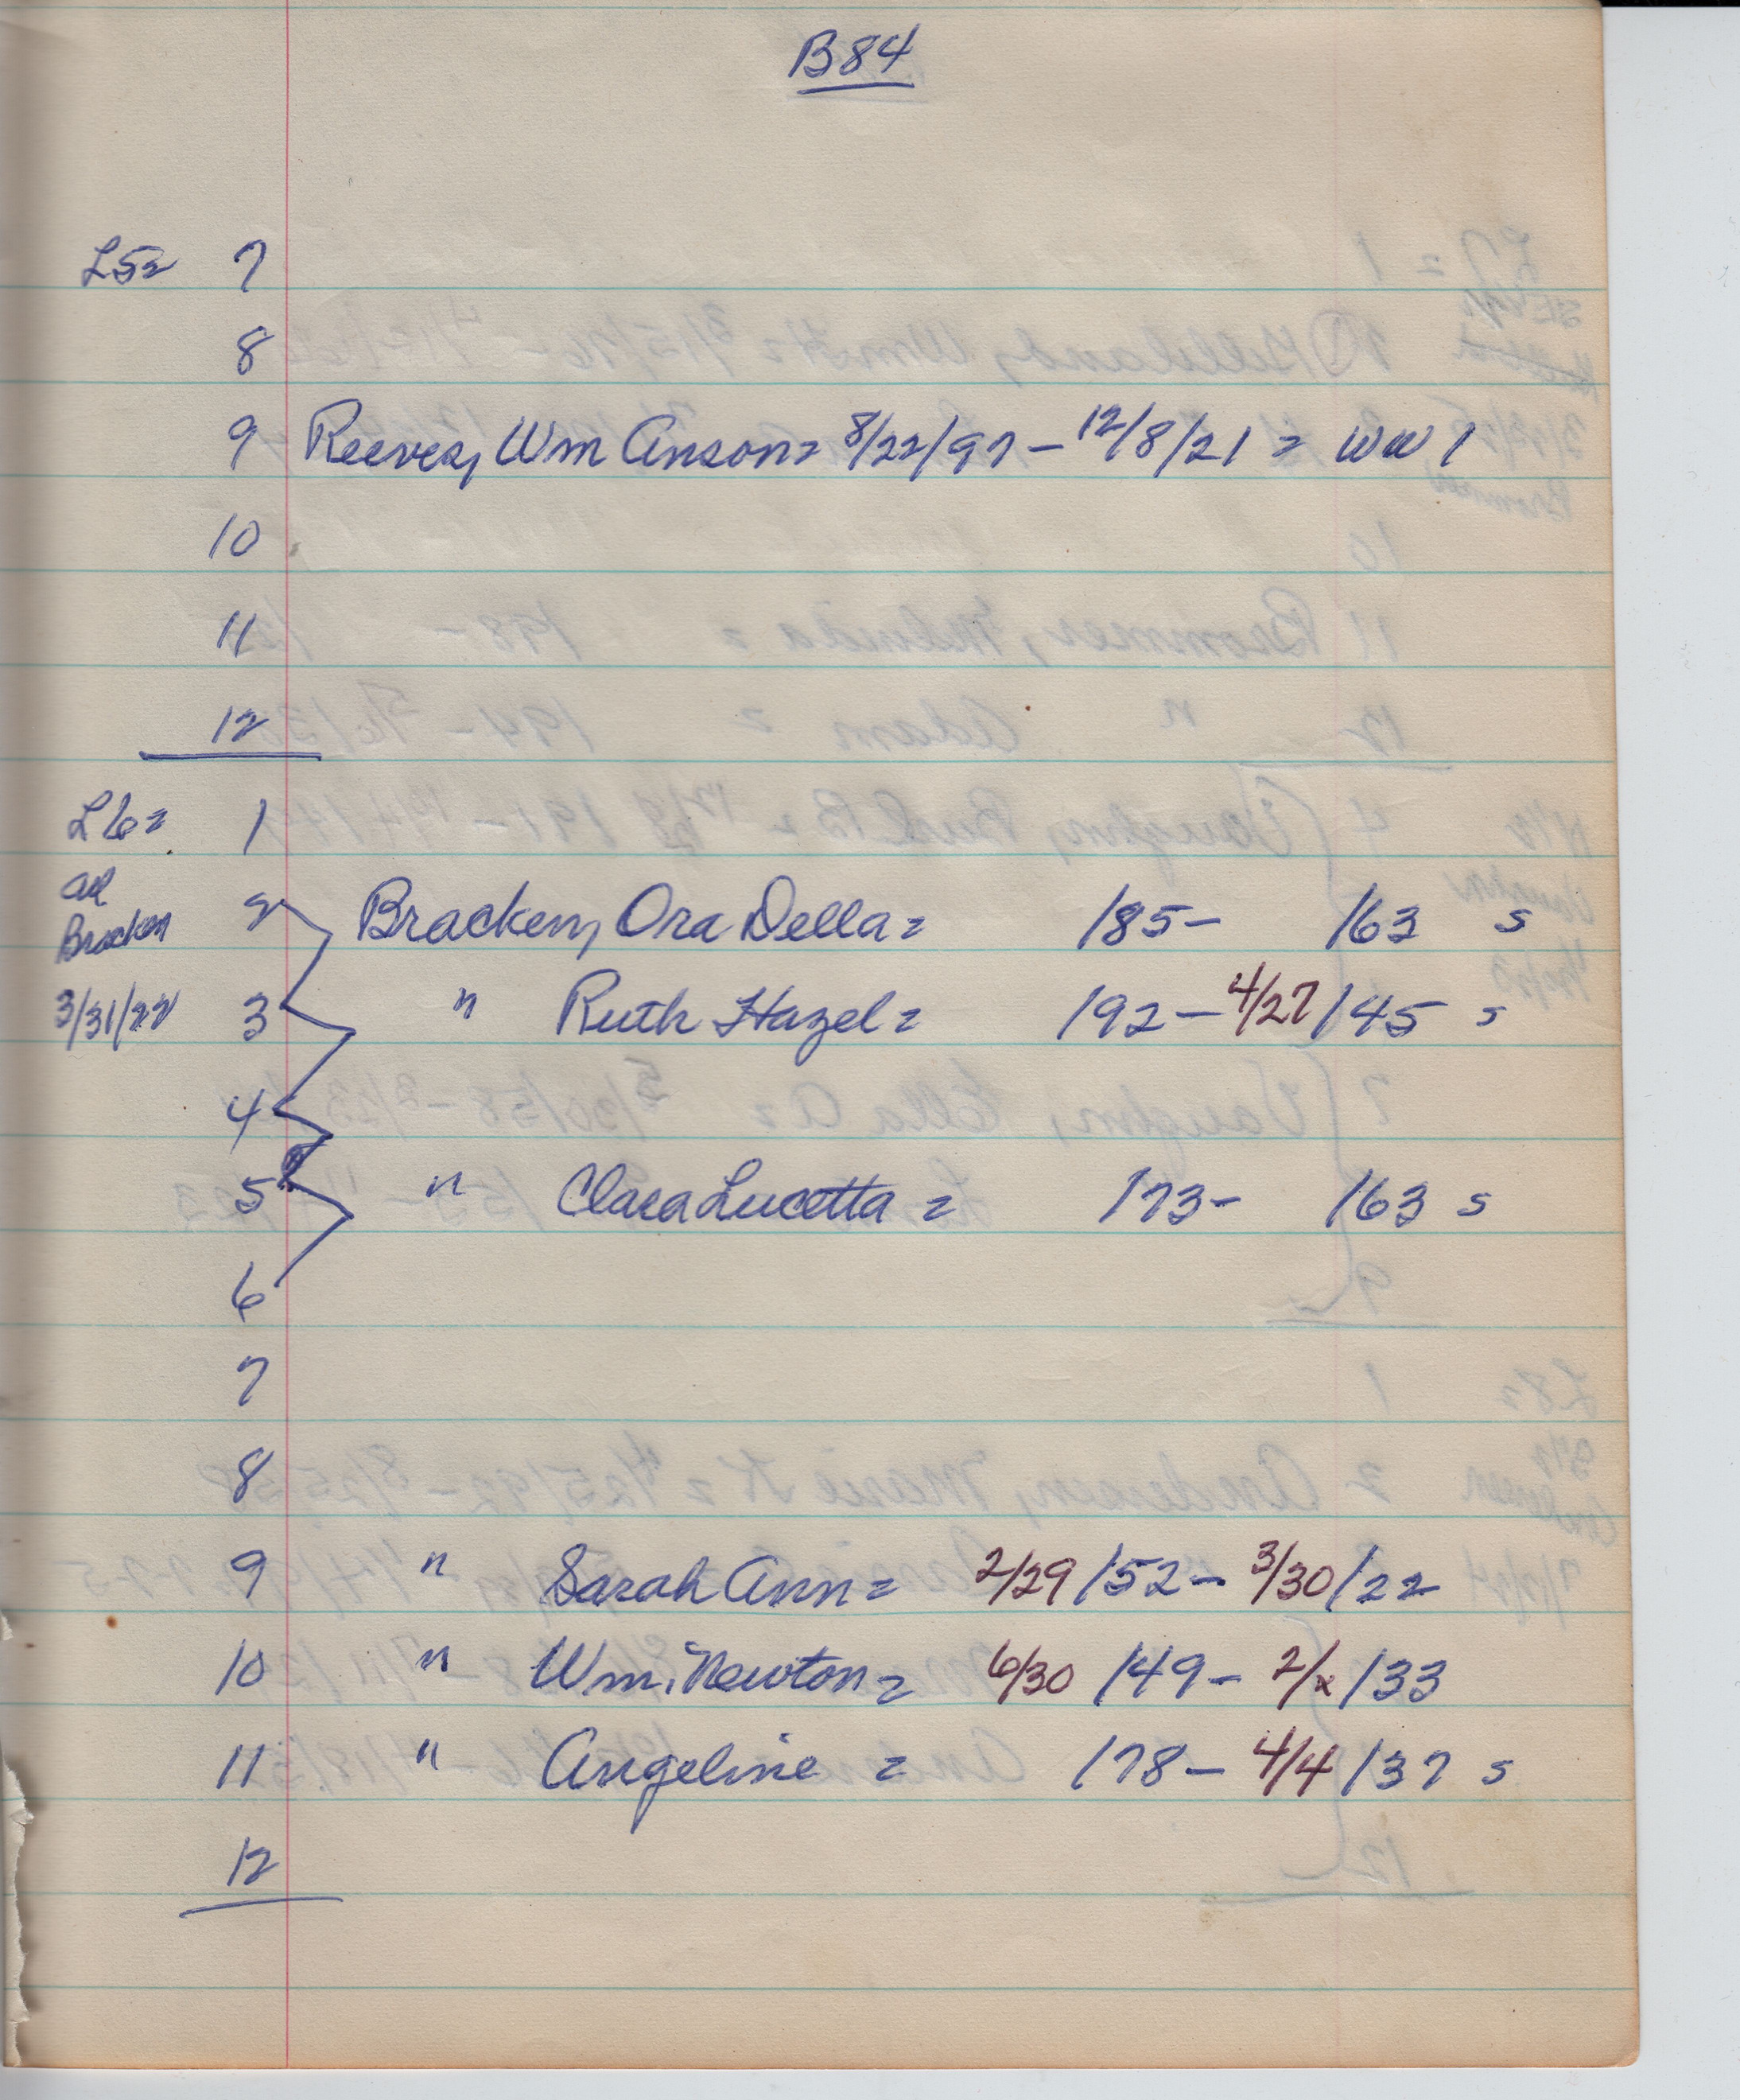 B84
L5= 7
8
9 Reeves, Wm Anson= 8/22/97 - 12/8/21 = WW 1
10
11
12
L6= 1
all
Bracken
2 Bracken, Ora Della = /85- /63 s
3/31/22 3 " Ruth Hazel = /92- 4/27/45 s
4
5 " Clara Lucetta = /73- /63 s
6
7
8
9 " Sarah Ann = 2/29/52- 3/30/22
10 " Wm. Newton = 6/30/49- 2/x/33
11 " Angeline = /78- 4/4/37 s
12